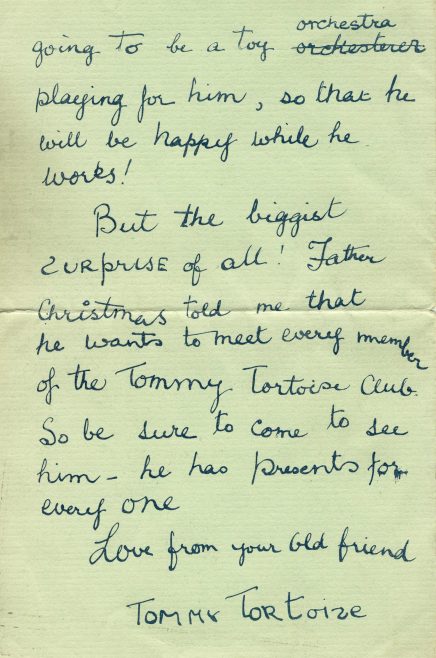 orchestra
going to be a toy orchesterer
playing for him, so that he
will be happy while he
works!
But the biggist
SURPRISE of all! Father
Christmas told me that
he wants to meet every member
of the Tommy Tortoise Club.
So be sure to come to see
him - he has presents for
every one
Love from your old friend
TOMMY TORTOISE